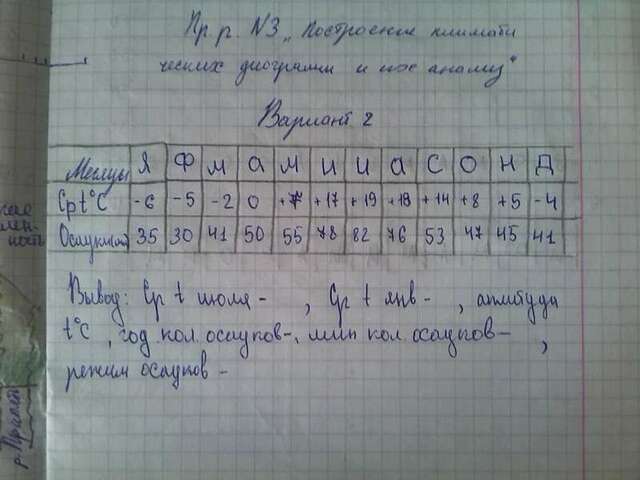 Пр.р. №3 „Построение климати
ческих диограмм и иос анализ"
Вариант 2
Месяцы Я Ф М А М И И А С О Н Д
Ср t°C -6 -5 -2 0 +7 +17 +19 +18 +14 +8 +5 -4
35 30 41 50 55 78 82 76 53 47 45 41
Вывод: Ср t июля - , Ср t янв - , амлитуда
t°C , год кол. осадков-, мин кол. осадков- ,
режим осадков -
р. Припят